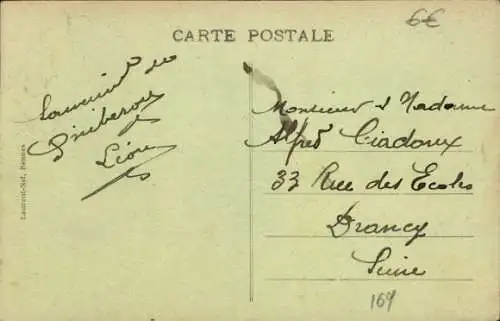 CARTE POSTALE
6€
Souvenir de
Quiberon
Léon
Laurent-Nel, Rennes
Monsieur & Madame
Alfred Ciadoux
33 Rue des Ecoles
Drancy
Seine
169